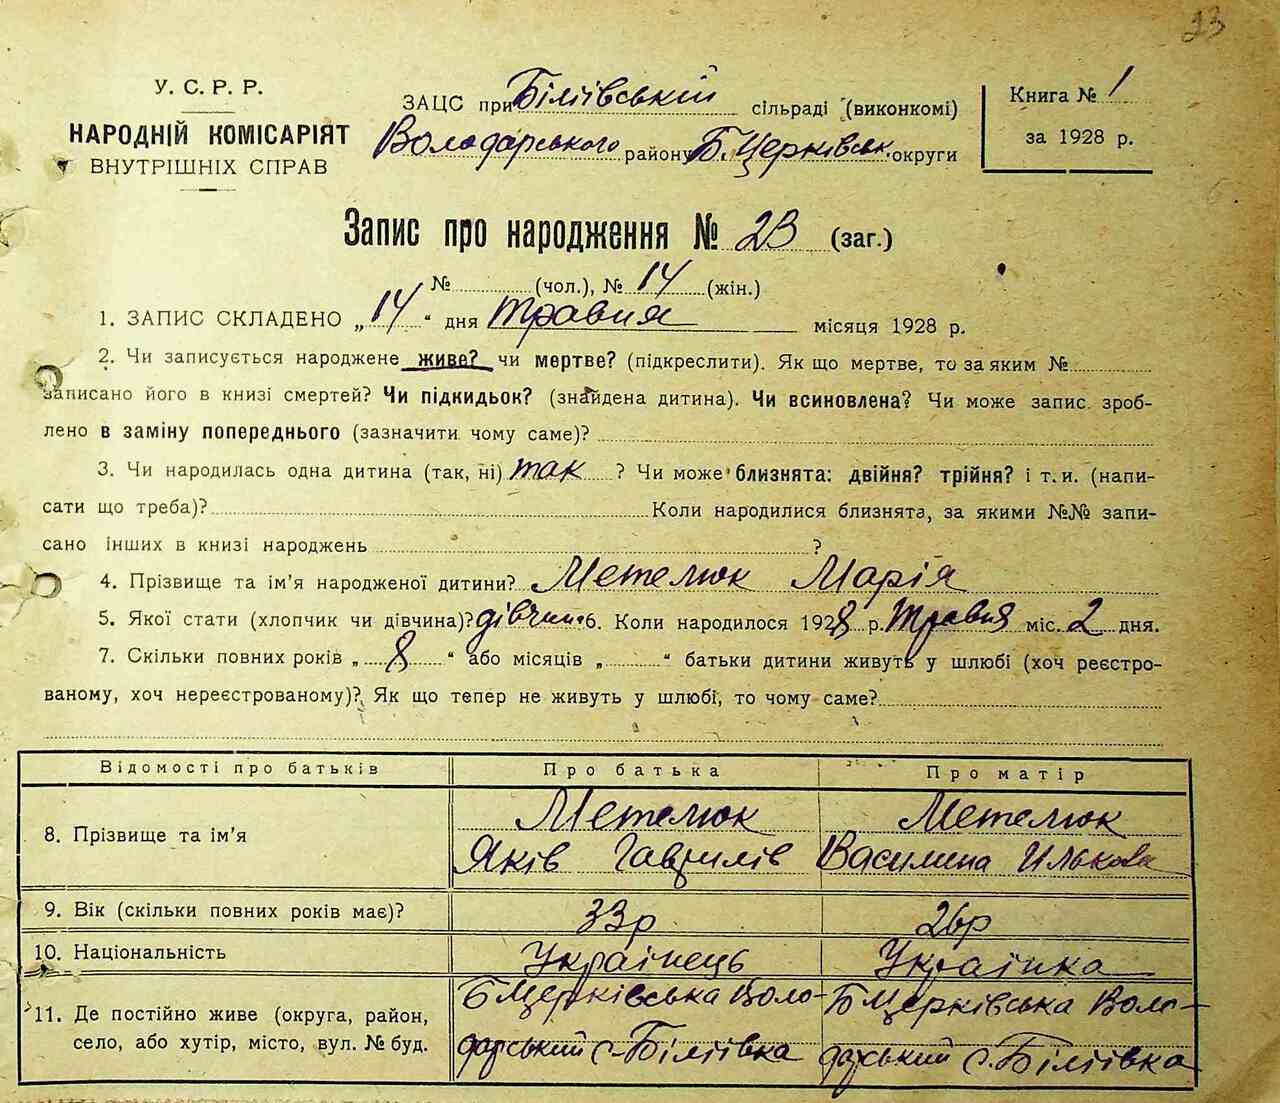 23
У. С. Р. Р.
НАРОДНІЙ КОМІСАРІЯТ
ВНУТРІШНІХ СПРАВ
ЗАЦС при Біліївській сільраді (виконкомі)
Володарського району Б. Церківськ. округи
Книга № 1
за 1928 р.
Запис про народження № 23 (заг.)
№ (чол.), № 14 (жін.)
1. ЗАПИС СКЛАДЕНО „14“ дня травня місяця 1928 р.
2. Чи записується народжене живе? чи мертве? (підкреслити). Як що мертве, то за яким №
записано його в книзі смертей? Чи підкидьок? (знайдена дитина). Чи всиновлена? Чи може запис зроб-
лено в заміну попереднього (зазначити чому саме)?
3. Чи народилась одна дитина (так, ні) так ? Чи може близнята: двійня? трійня? і т. и. (напи-
сати що треба)? Коли народилися близнята, за якими №№ запи-
сано інших в книзі народжень ?
4. Прізвище та ім'я народженої дитини? Метелюк Марія
5. Якої стати (хлопчик чи дівчина)? дівчин. 6. Коли народилося 1928 р. Травня міс. 2 дня.
7. Скільки повних років „ 8 “ або місяців „ “ батьки дитини живуть у шлюбі (хоч реєстро-
ваному, хоч нереєстрованому)? Як що тепер не живуть у шлюбі, то чому саме?
Відомості про батьків Про батька Про матір
8. Прізвище та ім'я Метелюк Яків Гаврилів Метелюк Василина Илькова
9. Вік (скільки повних років має)? 33р 26р
10. Національність Українець Українка
11. Де постійно живе (округа, район, село, або хутір, місто, вул. № буд. БЦерківська Воло-
дарський с. Біліївка БЦерківська Воло-
дарський с. Біліївка